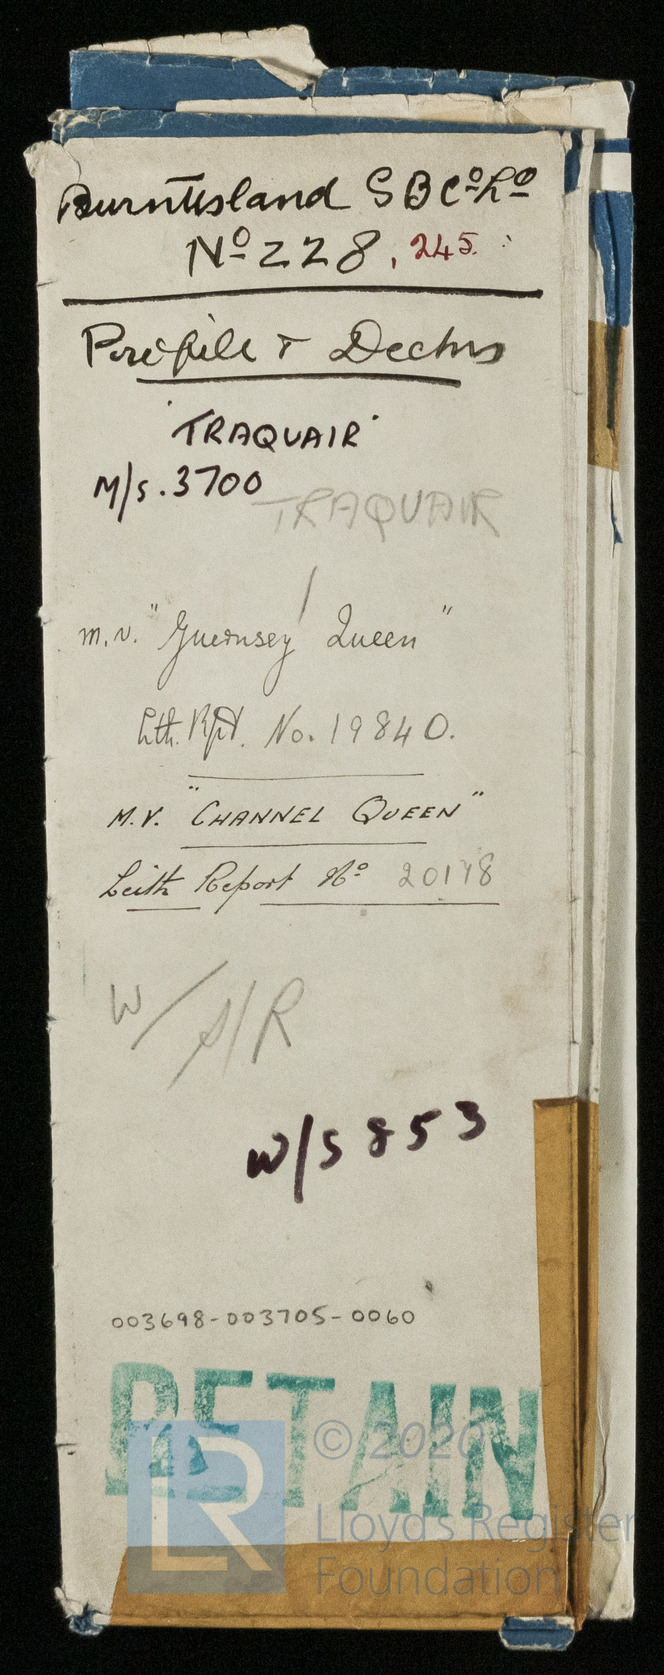 Burntisland S B Cº Lº
Nº 228, 245.
Profile & Decks
"TRAQUAIR"
M/s. 3700
TRAQUAIR
m.v. "Guernsey Queen"
Lth. Rpt. No. 19840.
M.V. "CHANNEL QUEEN"
Leith Report Nº 20118
W/S/R
W/S 853
003698-003705-0060
RETAIN
LR
© 2020
Lloyd's Register
Foundation